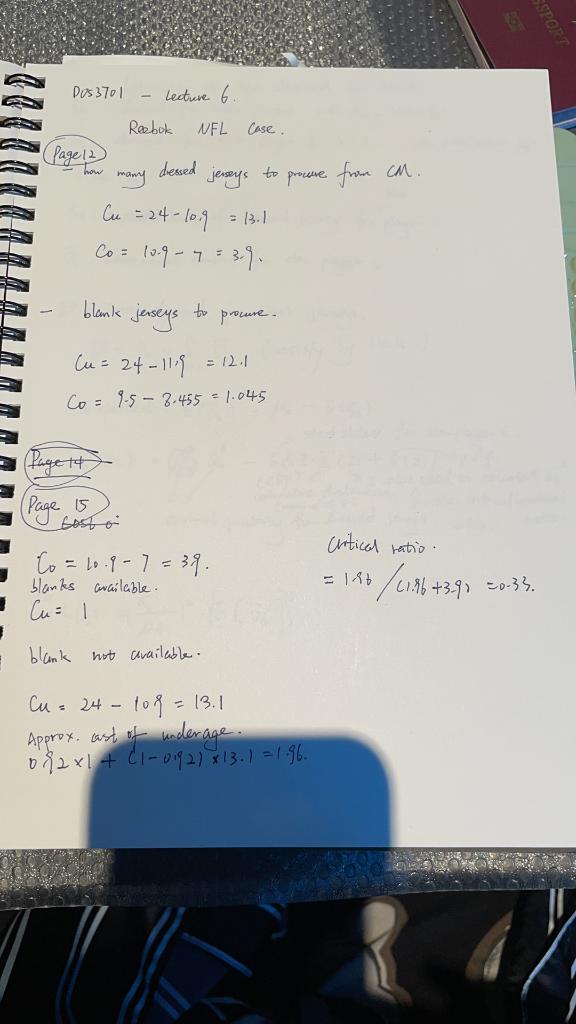 DOS3701 - Lecture 6.
Reebok NFL Case.
Page 12
- how many dressed jerseys to procure from CM.
Cu = 24-10.9 = 13.1
Co = 10.9 - 7 = 3.9.
- blank jerseys to procure.
Cu = 24 - 11.9 = 12.1
Co = 9.5 - 8.455 = 1.045
Page 14
Page 15
Cost o
Co = 10.9 - 7 = 3.9.
blanks available.
Cu = 1
blank not available.
Cu = 24 - 10.9 = 13.1
Approx. cost of underage.
0.92 x 1 + (1-0.92) x 13.1 = 1.96.
Critical ratio.
= 1.96 / (1.96 + 3.9) = 0.33.
SSPORT